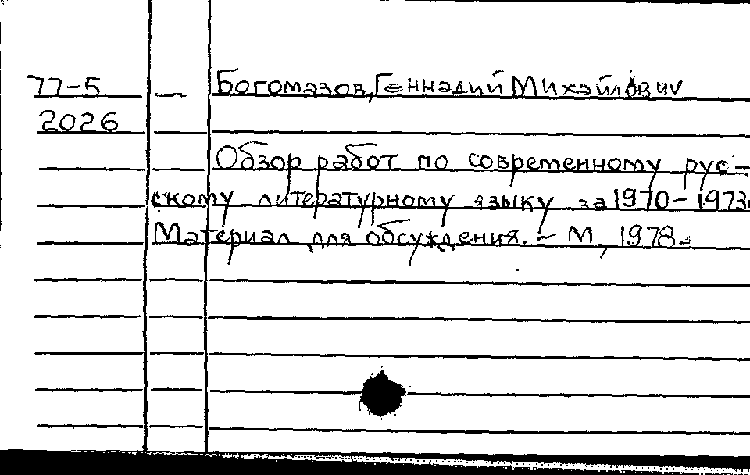 77-5 — Богомазов, Геннадий Михайлович
2026
Обзор работ по современному рус-
скому литературному языку за 1970-1973.
Материал для обсуждения. - М, 1978.